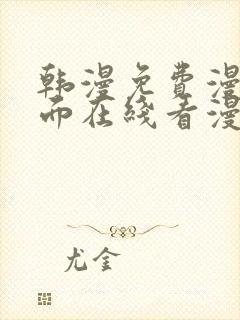 韩漫免费漫
而在线看漫
尤金